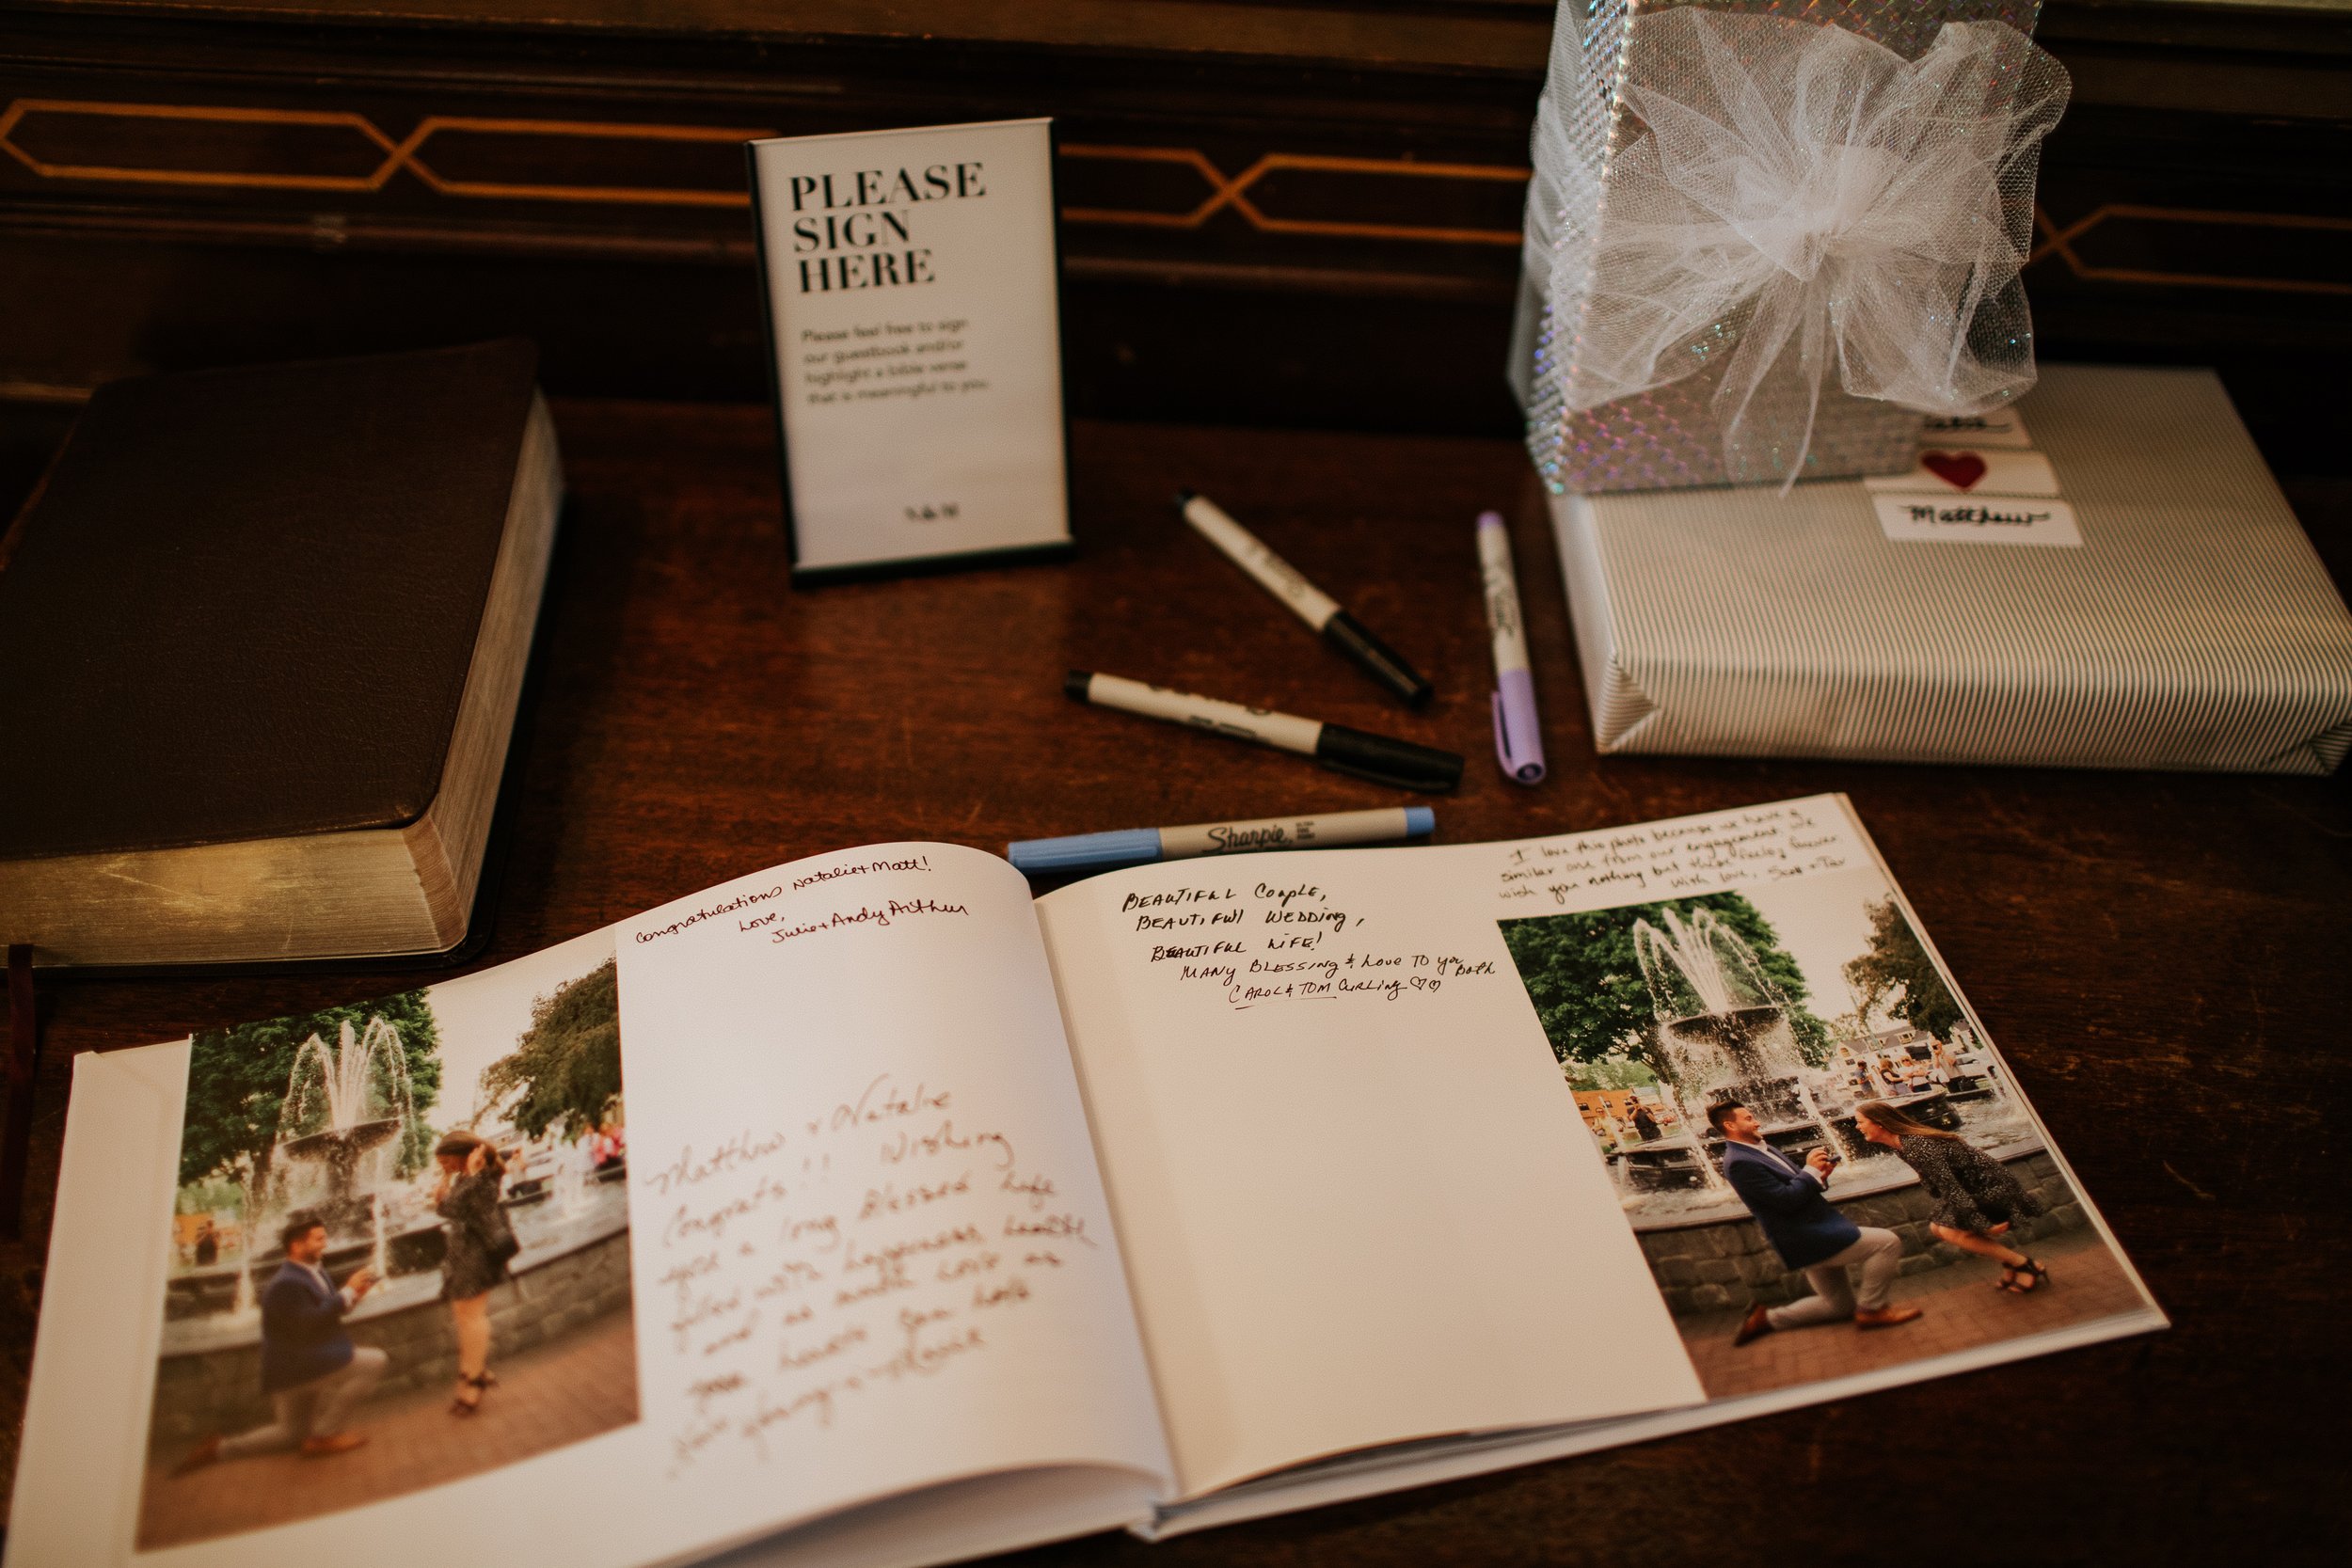 PLEASE
SIGN
HERE
Please feel free to sign
our guestbook and/or
highlight a bible verse
that is meaningful to you.
Matthew
Sharpie
Congratulations Natalie + Matt!
Love,
Julie + Andy Arthur
Matthew + Natalie
Congrats!! Wishing
you a long Blessed Life
filled with happiness health
and as much love as
your hearts can hold
BEAUTIFUL COUPLE,
BEAUTIFUll WEDDING,
BEAUTIFUL LIFE!
MANY BLESSING & Love TO you Both
CAROL & TOM CURLING ♡♡
I love this photo because we have a
similar one from our engagement. We
wish you nothing but these feels forever.
With love,